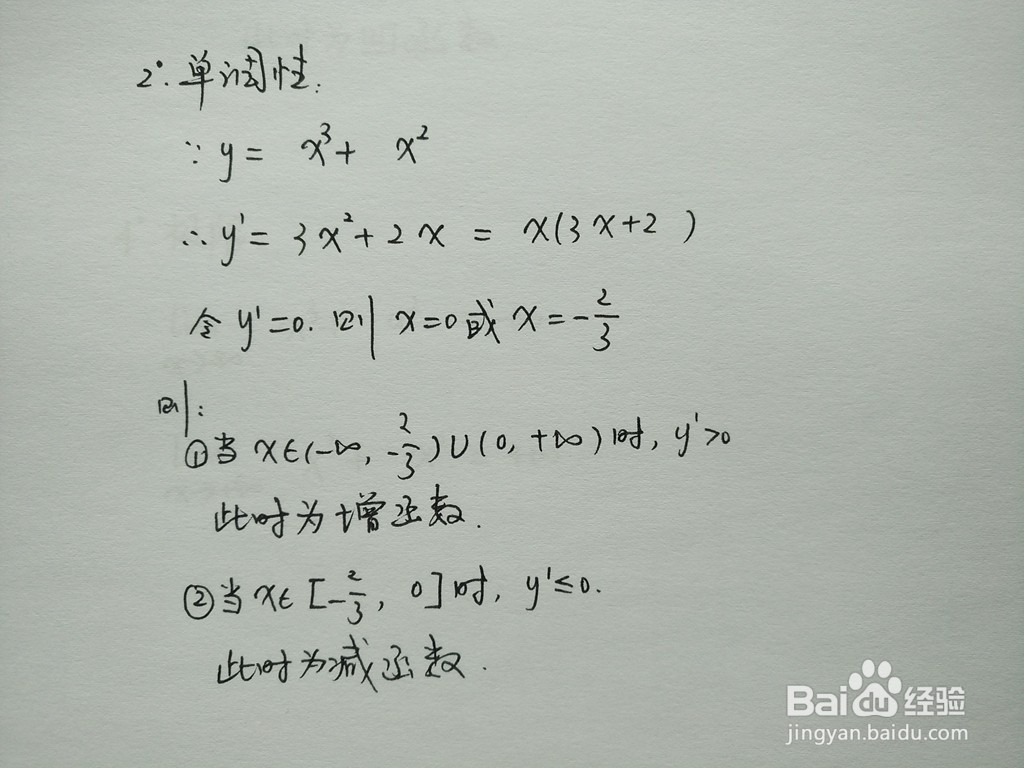 2°. 单调性:
∵ y = x³ + x²
∴ y' = 3x² + 2x = x(3x+2 )
令 y'=0. 则 x=0 或 x=-2/3
则:
①当 x∈(-∞, -2/3)∪(0, +∞)时, y'>0
此时为增函数.
②当 x∈[-2/3, 0]时, y'≤0.
此时为减函数.
Baidu经验
jingyan.baidu.com